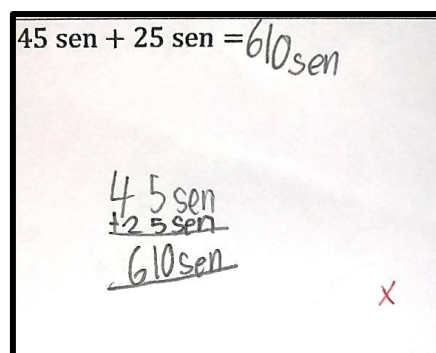 45 sen + 25 sen = 610 sen
45 sen
+25 sen
610 sen
x